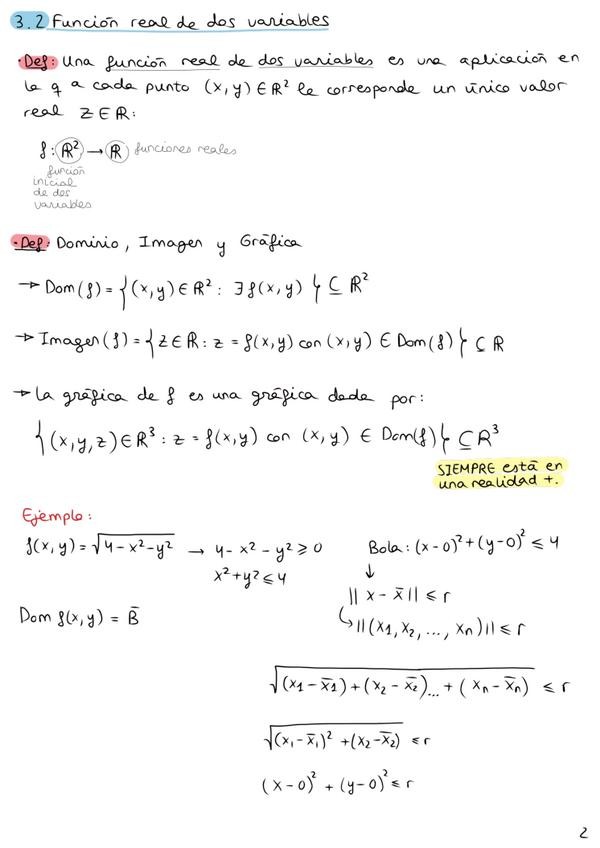 3.2 Función real de dos variables
·Def: Una función real de dos variables es una aplicación en
la q a cada punto (x,y) ∈ ℝ² le corresponde un único valor
real z ∈ ℝ:
f: ℝ² → ℝ funciones reales
función
inicial
de dos
variables
·Def: Dominio, Imagen y Gráfica
→ Dom(f) = {(x,y) ∈ ℝ² : ∃ f(x,y)} ⊆ ℝ²
→ Imagen(f) = {z ∈ ℝ : z = f(x,y) con (x,y) ∈ Dom(f)} ⊆ ℝ
→ La gráfica de f es una gráfica dada por:
{(x,y,z) ∈ ℝ³ : z = f(x,y) con (x,y) ∈ Dom(f)} ⊆ ℝ³
SIEMPRE está en
una realidad +.
Ejemplo:
f(x,y) = √(4-x²-y²) → 4-x²-y² ≥ 0
x²+y² ≤ 4
Dom f(x,y) = B̄
Bola: (x-0)²+(y-0)² ≤ 4
↓
||x - x̄|| ≤ r
↳ ||(x₁, x₂, ..., xn)|| ≤ r
√((x₁-x̄₁)+(x₂-x̄₂)...+(xn-x̄n)) ≤ r
√((x₁-x̄₁)²+(x₂-x̄₂)) ≤ r
(x-0)² + (y-0)² ≤ r
2